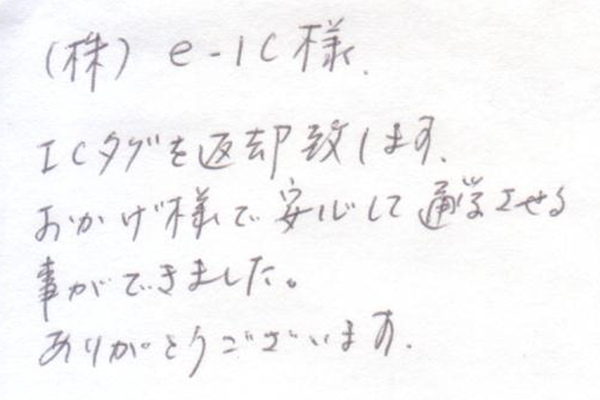 (株) e-IC様.
ICタグを返却致します.
おかげ様で安心して通学させる
事ができました。
ありがとうございます.